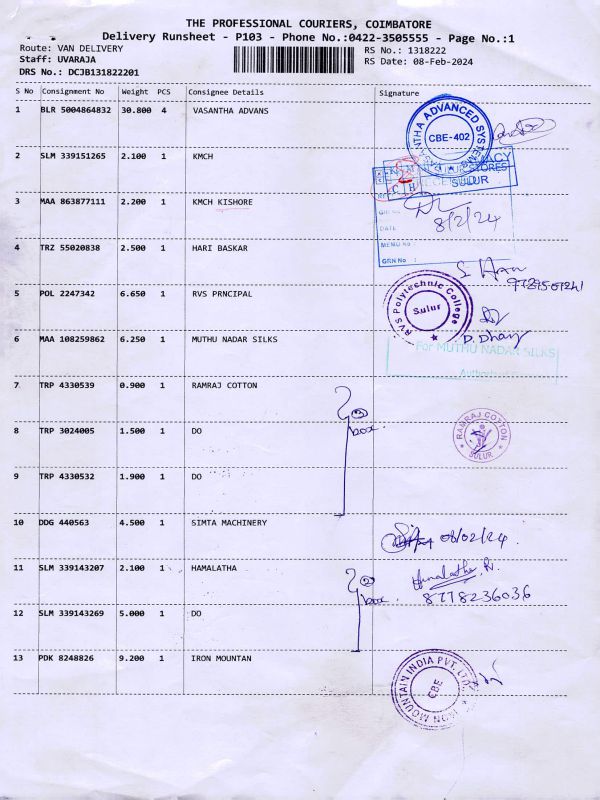 THE PROFESSIONAL COURIERS, COIMBATORE
Delivery Runsheet - P103 - Phone No.:0422-3505555 - Page No.:1
Route: VAN DELIVERY RS No.: 1318222
Staff: UVARAJA RS Date: 08-Feb-2024
DRS No.: DCJB131822201
S No Consignment No Weight PCS Consignee Details Signature
1 BLR 5004864832 30.800 4 VASANTHA ADVANS
VASANTHA ADVANCED SYSTEMS
CBE-402
2 SLM 339151265 2.100 1 KMCH
STORES
SULUR
3 MAA 863877111 2.200 1 KMCH KISHORE
8/2/24
DATE
MEMO No
GRN No :
4 TRZ 55020838 2.500 1 HARI BASKAR
5 POL 2247342 6.650 1 RVS PRNCIPAL
RVS Polytechnic College
Sulur
6 MAA 108259862 6.250 1 MUTHU NADAR SILKS
For MUTHU NADAN SILKS
7 TRP 4330539 0.900 1 RAMRAJ COTTON
8 TRP 3024005 1.500 1 DO
box.
RAMRAJ COTTON
SULUR
9 TRP 4330532 1.900 1 DO
10 DDG 440563 4.500 1 SIMTA MACHINERY
08/02/24.
11 SLM 339143207 2.100 1 HAMALATHA
Hemalatha. R.
2
box.
8778236036
12 SLM 339143269 5.000 1 DO
13 PDK 8248826 9.200 1 IRON MOUNTAN
IRON MOUNTAIN INDIA PVT. LTD.
CBE